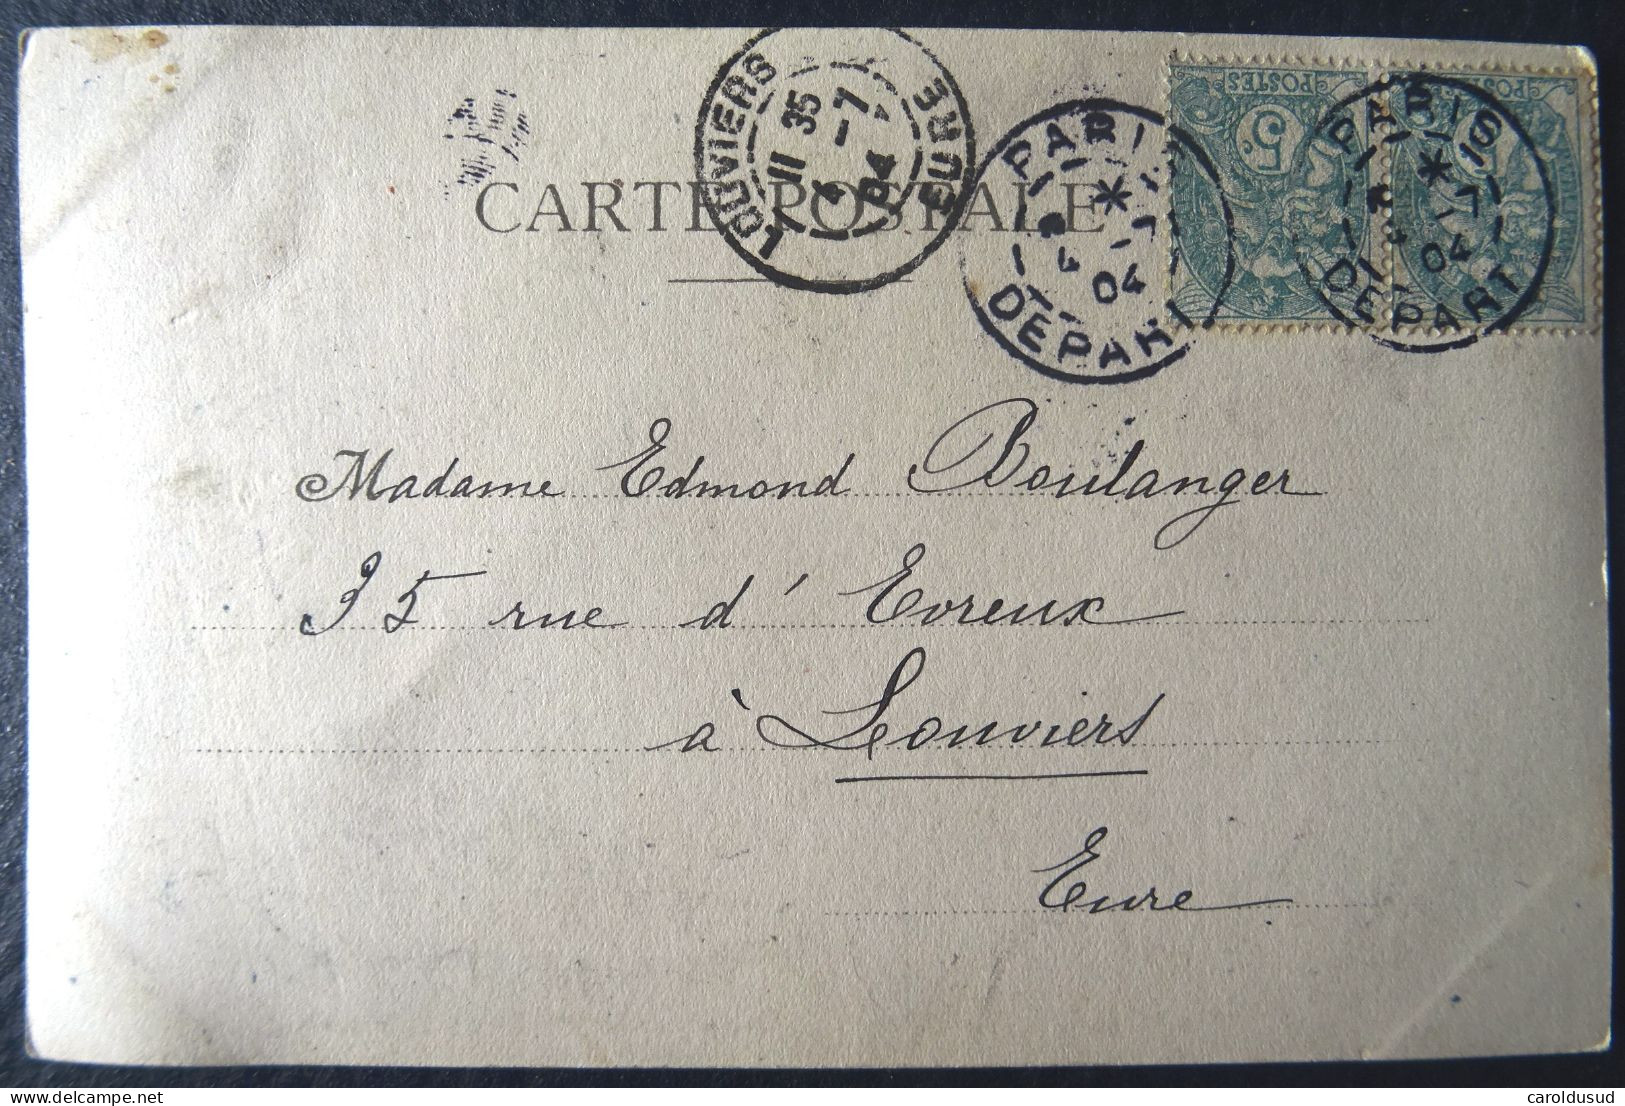 CARTE POSTALE
LOUVIERS EURE
11 35
4 -7
04
PARIS DEPART
*
4 -7
04
POSTES
5c
PARIS DEPART
*
4 -7
04
Madame Edmond Boulanger
35 rue d'Evreux
à Louviers
Eure
delcampe.net
caroldusud